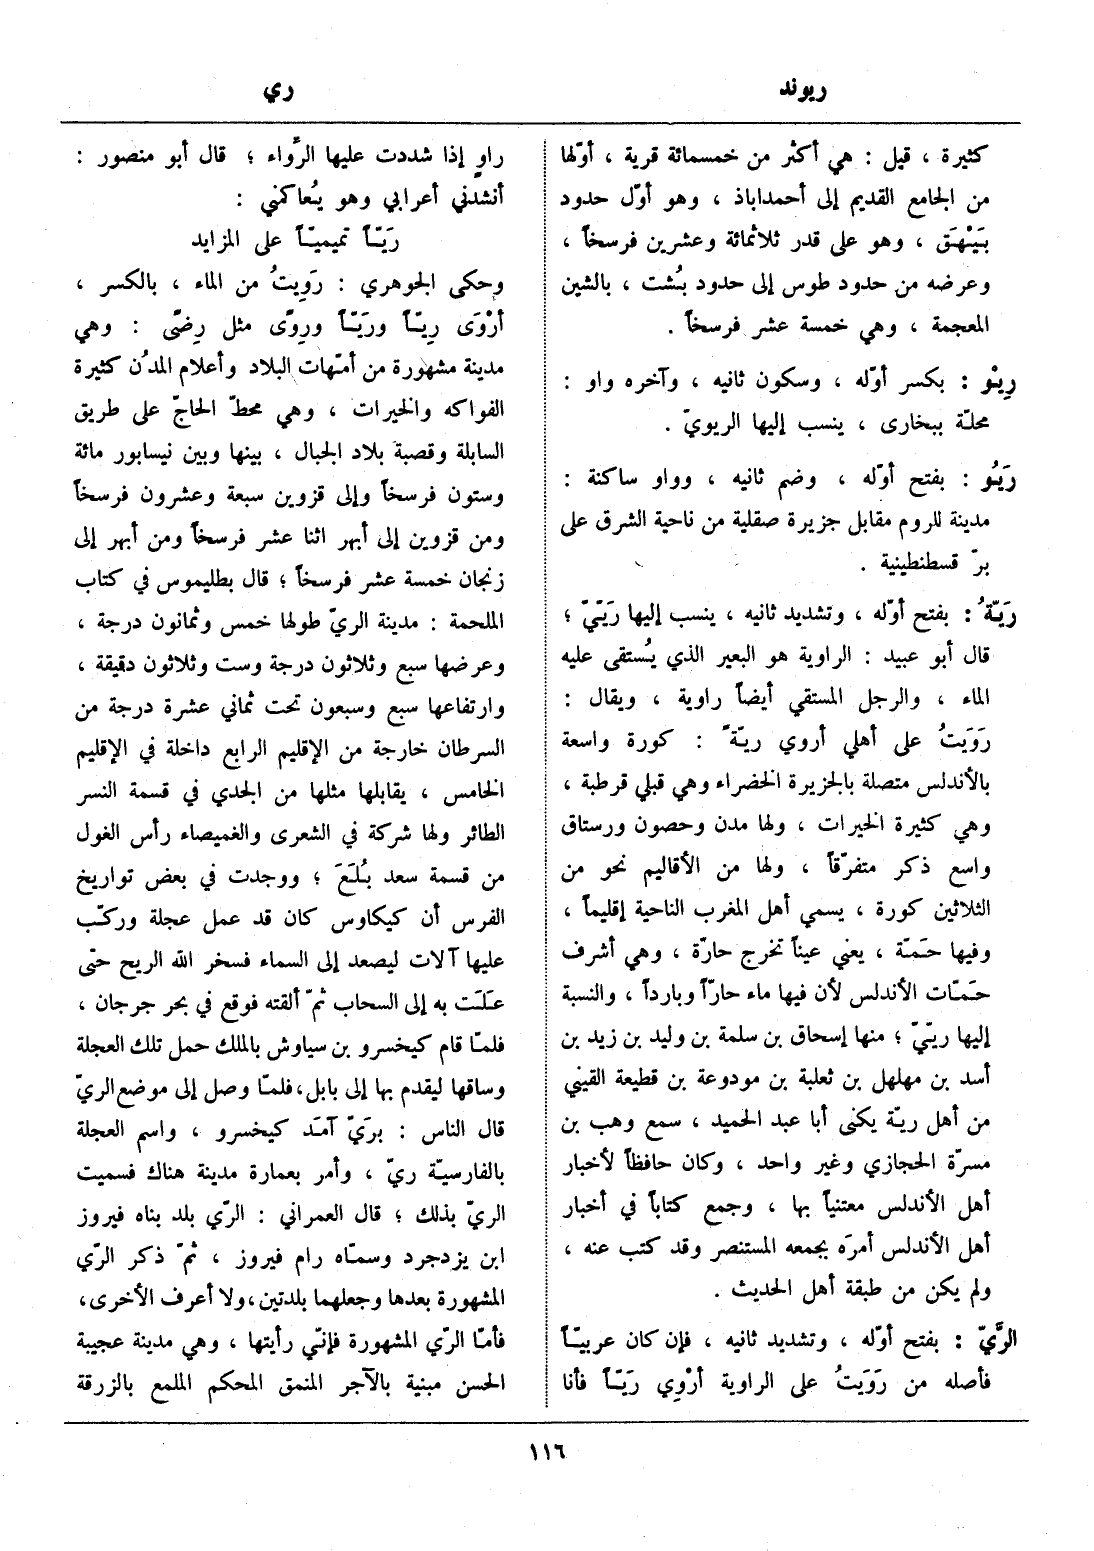 ريوند
ري
كثيرة ، قيل : هي أكثر من خمسمائة قرية ، أوّلها
من الجامع القديم إلى أحمداباذ ، وهو أوّل حدود
بَيْهَق ، وهو على قدر ثلاثمائة وعشرين فرسخاً ،
وعرضه من حدود طوس إلى حدود بُشت ، بالشين
المعجمة ، وهي خمسة عشر فرسخاً .
رِيْو : بكسر أوّله ، وسكون ثانيه ، وآخره واو :
محلّة ببخارى ، ينسب إليها الريويّ .
رَيُو : بفتح أوّله ، وضم ثانيه ، وواو ساكنة :
مدينة للروم مقابل جزيرة صقلية من ناحية الشرق على
برّ قسطنطينية .
رَيّةُ : بفتح أوّله ، وتشديد ثانيه ، ينسب إليها رَيّيّ ؛
قال أبو عبيد : الراوية هو البعير الذي يُستقى عليه
الماء ، والرجل المستقي أيضاً راوية ، ويقال :
رَوَيتُ على أهلي أروي ريّةً : كورة واسعة
بالأندلس متصلة بالجزيرة الخضراء وهي قبلي قرطبة ،
وهي كثيرة الخيرات ، ولها مدن وحصون ورستاق
واسع ذكر متفرّقاً ، ولها من الأقاليم نحو من
الثلاثين كورة ، يسمي أهل المغرب الناحية إقليماً ،
وفيها حَمّة ، يعني عيناً تخرج حارّة ، وهي أشرف
حَمّات الأندلس لأن فيها ماء حارّاً وبارداً ، والنسبة
إليها ريّيّ ؛ منها إسحاق بن سلمة بن وليد بن زيد بن
أسد بن مهلهل بن ثعلبة بن مودوعة بن قطيعة القيني
من أهل ريّة يكنى أبا عبد الحميد ، سمع وهب بن
مسرّة الحجازي وغير واحد ، وكان حافظاً لأخبار
أهل الأندلس معتنياً بها ، وجمع كتاباً في أخبار
أهل الأندلس أمرَه بجمعه المستنصر وقد كتب عنه ،
ولم يكن من طبقة أهل الحديث .
الرَّيّ : بفتح أوّله ، وتشديد ثانيه ، فإن كان عربيّاً
فأصله من رَوَيتُ على الراوية أرْوِي رَيّاً فأنا
راوٍ إذا شددت عليها الرِّواء ؛ قال أبو منصور :
أنشدني أعرابي وهو يُعاكمني :
رَيّاً تميميّاً على المزايد
وحكى الجوهري : رَوِيتُ من الماء ، بالكسر ،
أرْوَى رِيّاً ورَيّاً وروًى مثل رِضًى : وهي
مدينة مشهورة من أمّهات البلاد وأعلام المدُن كثيرة
الفواكه والخيرات ، وهي محطّ الحاجّ على طريق
السابلة وقصبة بلاد الجبال ، بينها وبين نيسابور مائة
وستون فرسخاً وإلى قزوين سبعة وعشرون فرسخاً
ومن قزوين إلى أبهر اثنا عشر فرسخاً ومن أبهر إلى
زنجان خمسة عشر فرسخاً ؛ قال بطليموس في كتاب
الملحمة : مدينة الريّ طولها خمس وثمانون درجة ،
وعرضها سبع وثلاثون درجة وست وثلاثون دقيقة ،
وارتفاعها سبع وسبعون تحت ثماني عشرة درجة من
السرطان خارجة من الإقليم الرابع داخلة في الإقليم
الخامس ، يقابلها مثلها من الجدي في قسمة النسر
الطائر ولها شركة في الشعرى والغميصاء رأس الغول
من قسمة سعد بُلَعَ ؛ ووجدت في بعض تواريخ
الفرس أن كيكاوس كان قد عمل عجلة وركّب
عليها آلات ليصعد إلى السماء فسخر الله الريح حتّى
عَلَت به إلى السحاب ثمّ ألقته فوقع في بحر جرجان ،
فلمّا قام كيخسرو بن سياوش بالملك حمل تلك العجلة
وساقها ليقدم بها إلى بابل، فلمّا وصل إلى موضع الريّ
قال الناس : بريّ آمَد كيخسرو ، واسم العجلة
بالفارسيّة ريّ ، وأمر بعمارة مدينة هناك فسميت
الريّ بذلك ؛ قال العمراني : الرّي بلد بناه فيروز
ابن يزدجرد وسمّاه رام فيروز ، ثمّ ذكر الرّي
المشهورة بعدها وجعلهما بلدتين، ولا أعرف الأخرى،
فأمّا الرّي المشهورة فإنّي رأيتها ، وهي مدينة عجيبة
الحسن مبنية بالآجر المنمق المحكم الملمع بالزرقة
١١٦